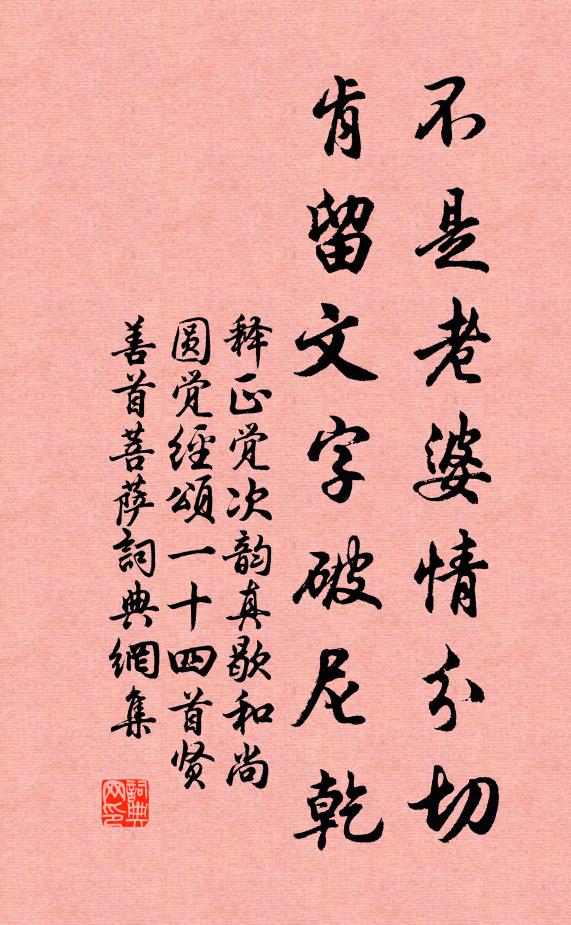 不是老婆情分切
肯留文字破尼乾
释正觉次韵真歇和尚
圆觉經頌一十四首贤
善首菩萨詞典網集
詞典网印